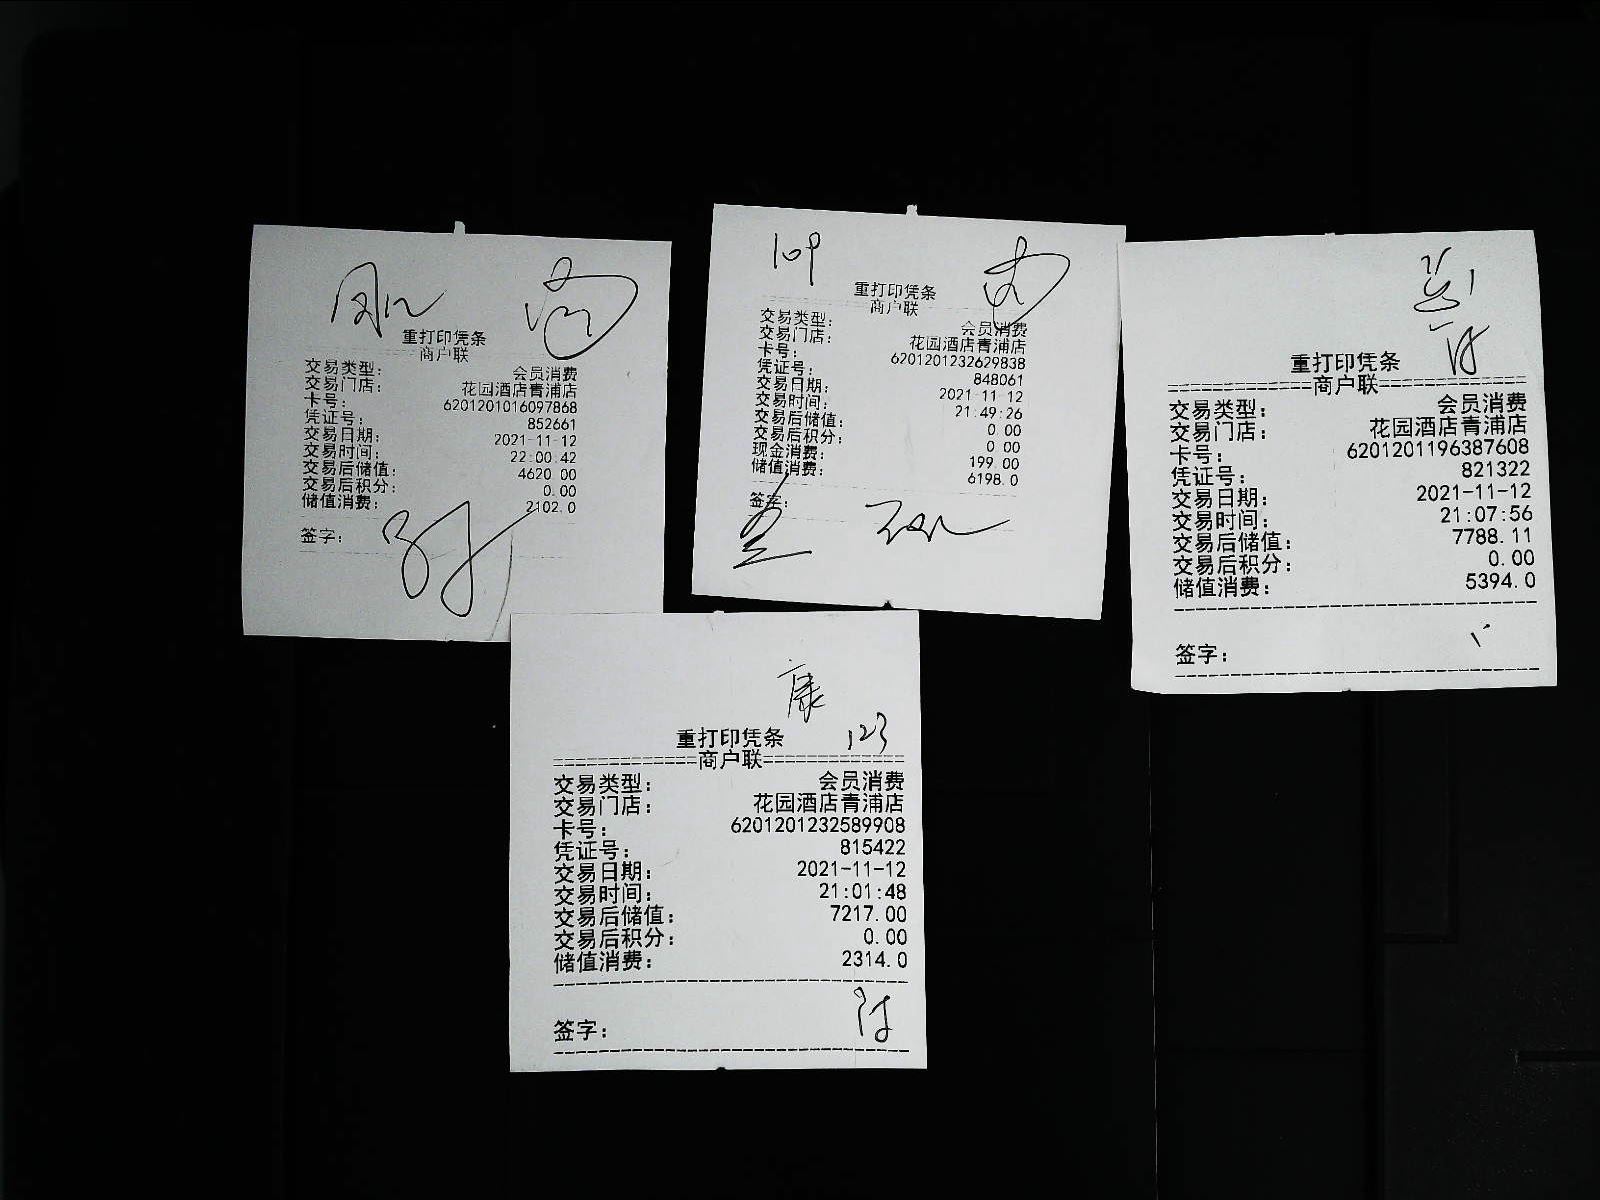 重打印凭条
商户联
交易类型： 会员消费
交易门店： 花园酒店青浦店
卡号： 6201201016097868
凭证号： 852661
交易日期： 2021-11-12
交易时间： 22:00:42
交易后储值： 4620.00
交易后积分： 0.00
储值消费： 2102.0
签字：
109
重打印凭条
商户联
交易类型： 会员消费
交易门店： 花园酒店青浦店
卡号： 6201201232629838
凭证号： 848061
交易日期： 2021-11-12
交易时间： 21:49:26
交易后储值： 0.00
交易后积分： 0.00
现金消费： 199.00
储值消费： 6198.0
签字：
重打印凭条
============商户联============
交易类型： 会员消费
交易门店： 花园酒店青浦店
卡号： 6201201196387608
凭证号： 821322
交易日期： 2021-11-12
交易时间： 21:07:56
交易后储值： 7788.11
交易后积分： 0.00
储值消费： 5394.0
签字：
康
123
重打印凭条
============商户联============
交易类型： 会员消费
交易门店： 花园酒店青浦店
卡号： 6201201232589908
凭证号： 815422
交易日期： 2021-11-12
交易时间： 21:01:48
交易后储值： 7217.00
交易后积分： 0.00
储值消费： 2314.0
签字：